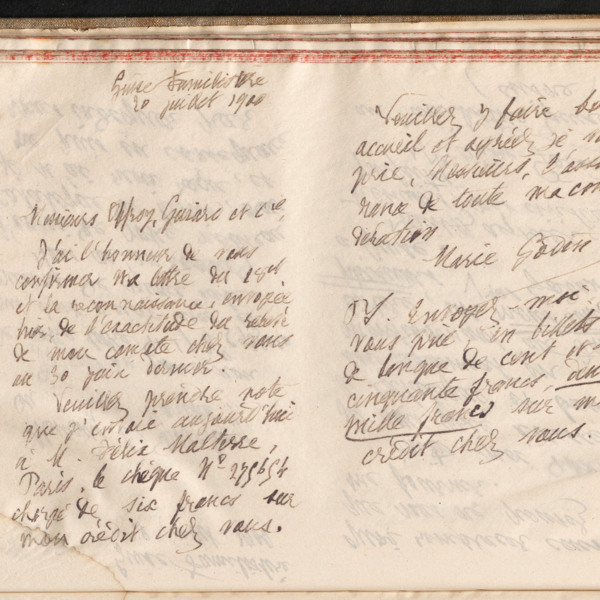 Guise Familistère
20 juillet 1900
Messieurs Offroy, Guiard et Cie,
J'ai l'honneur de vous
confirmer ma lettre du 18 ct
et la reconnaissance, envoyée
hier, de l'exactitude du relevé
de mon compte chez vous
au 30 juin dernier.
Veuillez prendre note
que j'envoie aujourd'hui
à M. Félix Malterre,
Paris, le chèque No 275654
chargé de six francs sur
mon crédit chez vous.
Veuillez y faire bon
accueil et agréer, je v
prie, Messieurs, l'assu
rance de toute ma con
dération
Marie Godin
P.S. Envoyez-moi
vous prie, en billets
de banque de cent et
cinquante francs,
mille francs sur m
crédit chez vous.